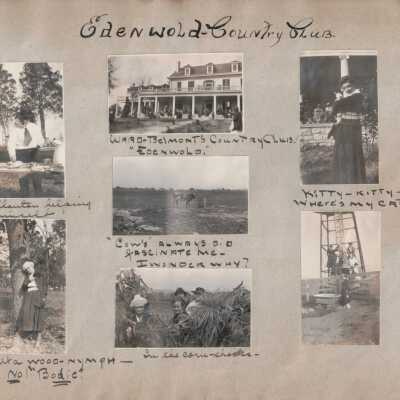 Edenwold-Country Club.
Ward-Belmont's Country Club.
"Edenwold."
Kitty-Kitty-
Where's my cat
"Cow's always did
fascinate me-
I wonder why?
wood-nymph-
No! "Bodie"
In the corn-shocks-